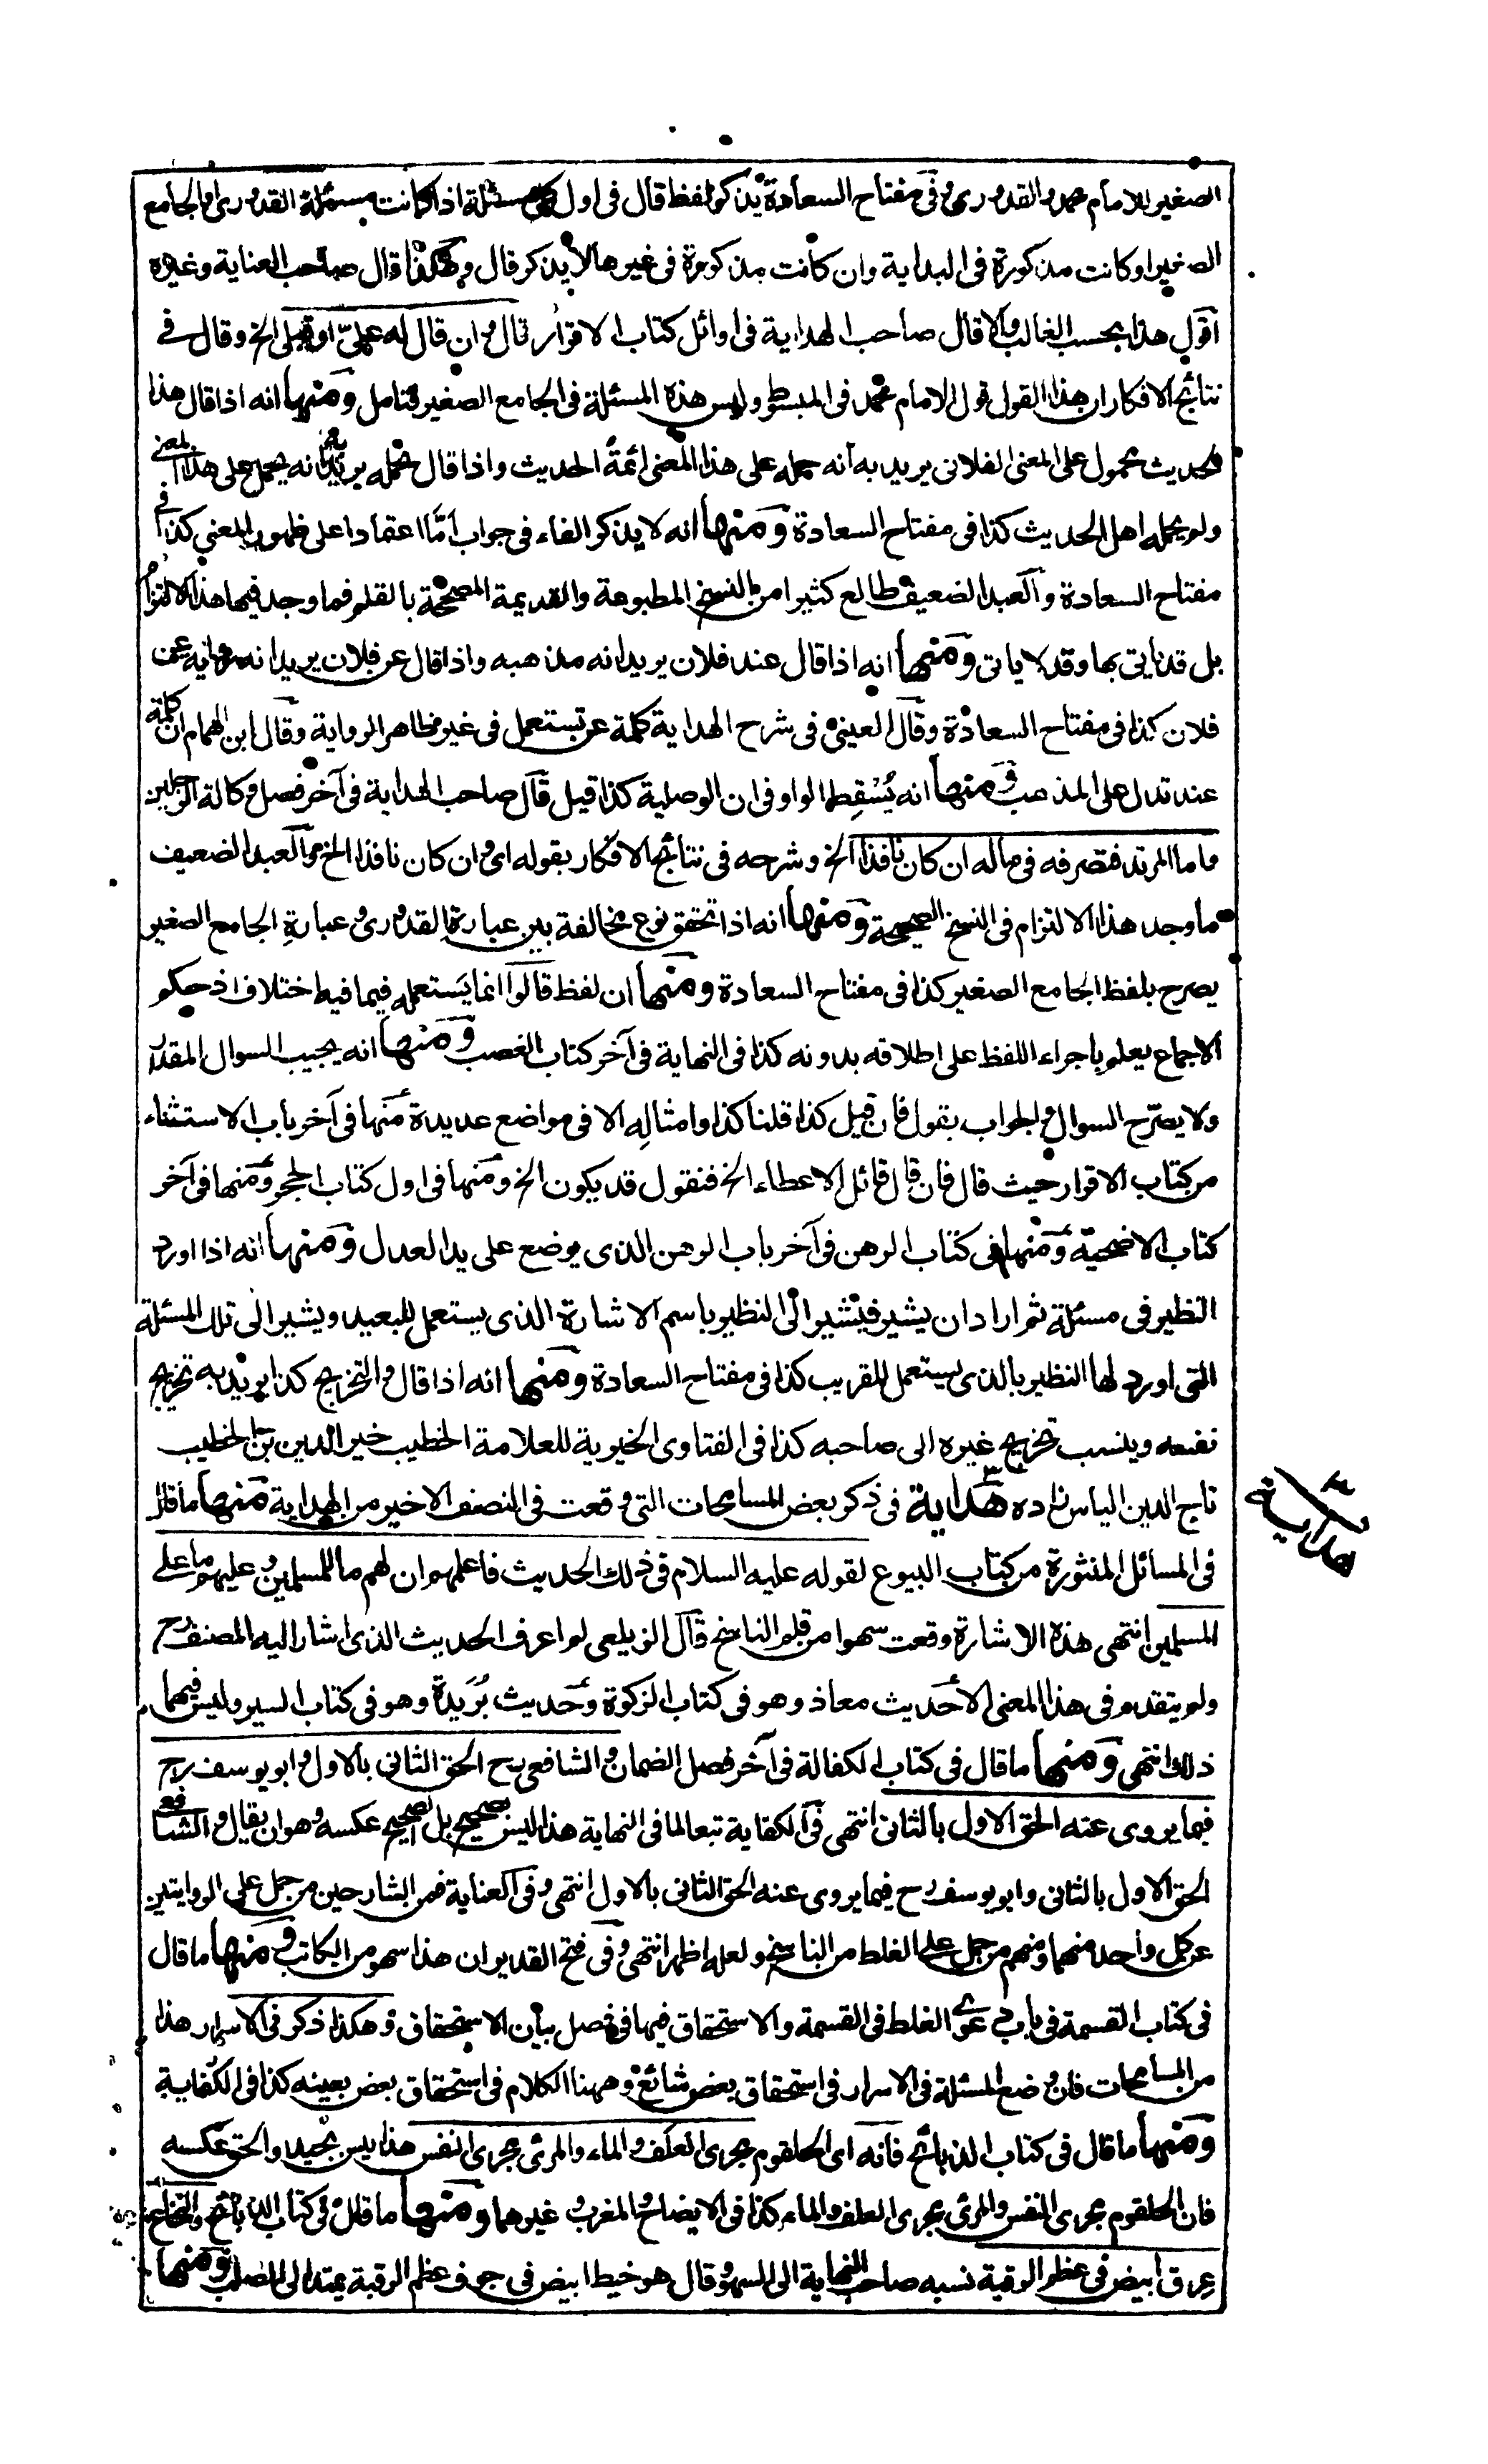 الصغير للامام محمد والقدوري وفي مفتاح السعادة يذكر لفظ قال في اول كل مسئلة اذا كانت مسئلة القدوري والجامع
الصغير او كانت مذكورة في البداية وان كانت مذكورة في غيرها لا يذكر قال وهكذا قال صاحب العناية وغيره
اقول هذا بحسب الغالب والا قال صاحب الهداية في اوائل كتاب الاقرار قال وان قال له علىّ او قبلي الخ وقال في
نتائج الافكار ان هذا القول قول الامام محمد في المبسوط وليس هذه المسئلة في الجامع الصغير فتامل ومنها انه اذا قال هذا
الحديث محمول على المعنى الفلاني يريد به أنه حمله على هذا المعنى ائمة الحديث واذا قال نحمله يريد به انه يحمل على هذا المعنى
ولم يحمله اهل الحديث كذا في مفتاح السعادة ومنها انه لا يذكر الفاء في جواب امّا اعتمادا على ظهور المعنى كذا في
مفتاح السعادة والعبد الضعيف طالع كثيرا من النسخ المطبوعة والقديمة المصححة بالقلم فما وجد فيها هذا الالتزام
بل قد ياتي بها وقد لا ياتي ومنها انه اذا قال عند فلان يريد انه مذهبه واذا قال عن فلان يريد انه رواية عن
فلان كذا في مفتاح السعادة وقال العيني في شرح الهداية كلمة عن تستعمل في غير ظاهر الرواية وقال ابن الهمام ان كلمة
عند تدل على المذهب ومنها انه يُسْقِط الواو في ان الوصلية كذا قيل قال صاحب الهداية في آخر فصل وكالة الرجلين
واما المرتد فتصرفه في ماله ان كان نافذا الخ وشرحه في نتائج الافكار بقوله اي وان كان نافذا الخ والعبد الضعيف
ما وجد هذا الالتزام في النسخ الصحيحة ومنها انه اذا تحقق نوع مخالفة بين عبارة القدوري وعبارةِ الجامع الصغير
يصرح بلفظ الجامع الصغير كذا في مفتاح السعادة ومنها ان لفظ قالوا انما يستعمله فيما فيه اختلاف اذ حكم
الاجماع يعلم باجراء اللفظ على اطلاقه بدونه كذا في النهاية في آخر كتاب الغصب ومنها انه يجيب السوال المقدر
ولا يصرّح السوال والجواب بقول فان قيل كذا قلنا كذا وامثاله الا في مواضع عديدة منها في آخر باب الاستثناء
من كتاب الاقرار حيث قال فان قال قائل الاعطاء الخ فنقول قد يكون الخ ومنها في اول كتاب الحجر ومنها في آخر
كتاب الاضحية ومنها في كتاب الرهن في آخر باب الرهن الذي يوضع على يد العدل ومنها انه اذا اورد
النظير في مسئلة ثم اراد ان يشير فيشير الى النظير باسم الاشارة الذي يستعمل للبعيد ويشير الى تلك المسئلة
التي اورد لها النظير بالذي يستعمل للقريب كذا في مفتاح السعادة ومنها انه اذا قال والتخريج كذا يريد به تخريج
نفسه وينسب تخريج غيره الى صاحبه كذا في الفتاوى الخيرية للعلامة الخطيب خير الدين بن الخطيب
تاج الدين الياس زاده هداية في ذكر بعض المسامحات التي وقعت في النصف الاخير من الهداية منها ما قال
في المسائل المنثورة من كتاب البيوع لقوله عليه السلام في ذلك الحديث فاعلمهم ان لهم ما للمسلمين وعليهم ما على
المسلمين انتهى هذه الاشارة وقعت سهوا من قلم الناسخ قال الزيلعي لم اعرف الحديث الذي اشار اليه المصنف رح
ولم يتقدم في هذا المعنى الا حديث معاذ وهو في كتاب الزكوة وحديث بُرَيدة وهو في كتاب السير وليس فيهما
ذلك انتهى ومنها ما قال في كتاب الكفالة في آخر فصل الضمان والشافعي رح الحق الثاني بالاول وابو يوسف رح
فيما يروى عنه الحق الاول بالثاني انتهى في الكفاية تبعا لما في النهاية هذا ليس بصحيح بل الصحيح عكسه وهو ان يقال والشافعي
الحق الاول بالثاني وابو يوسف رح فيما يروى عنه الحق الثاني بالاول انتهى وفي العناية فمن الشارحين من حمل على الروايتين
عن كل واحد منهما ومنهم من حمل على الغلط من الناسخ ولعله اظهر انتهى وفي فتح القدير ان هذا سهو من الكاتب ومنها ما قال
في كتاب القسمة في باب دعوى الغلط في القسمة والاستحقاق فيها في فصل بيان الاستحقاق وهكذا ذكر في الاسرار هذا
من المسامحات فان وضع المسئلة في الاسرار في استحقاق بعض شائع وههنا الكلام في استحقاق بعض بعينه كذا في الكفاية
ومنها ما قال في كتاب الذبائح فانه اي الحلقوم مجرى العلف والماء والمرئ مجرى النفس هذا ليس بجيد والحق عكسه
فان الحلقوم مجرى النفس والمرئ مجرى العلف والماء كذا في الايضاح والمغرب وغيرهما ومنها ما قال في كتاب الذبائح والنخاع
عِرق ابيض في عظم الرقبة نسبه صاحب النهاية الى السهو وقال هو خيط ابيض في جوف عظم الرقبة يمتد الى الصلب ومنها
هداية